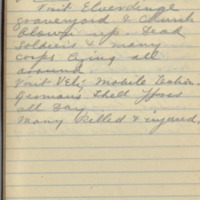 Visit Elverdinge
graveyard & Church
blown up. Dead
Soldiers & many
corps lying all
around.
Visit Vety Mobile Section
Germans Shell Ypres
all day
Many killed & injured.